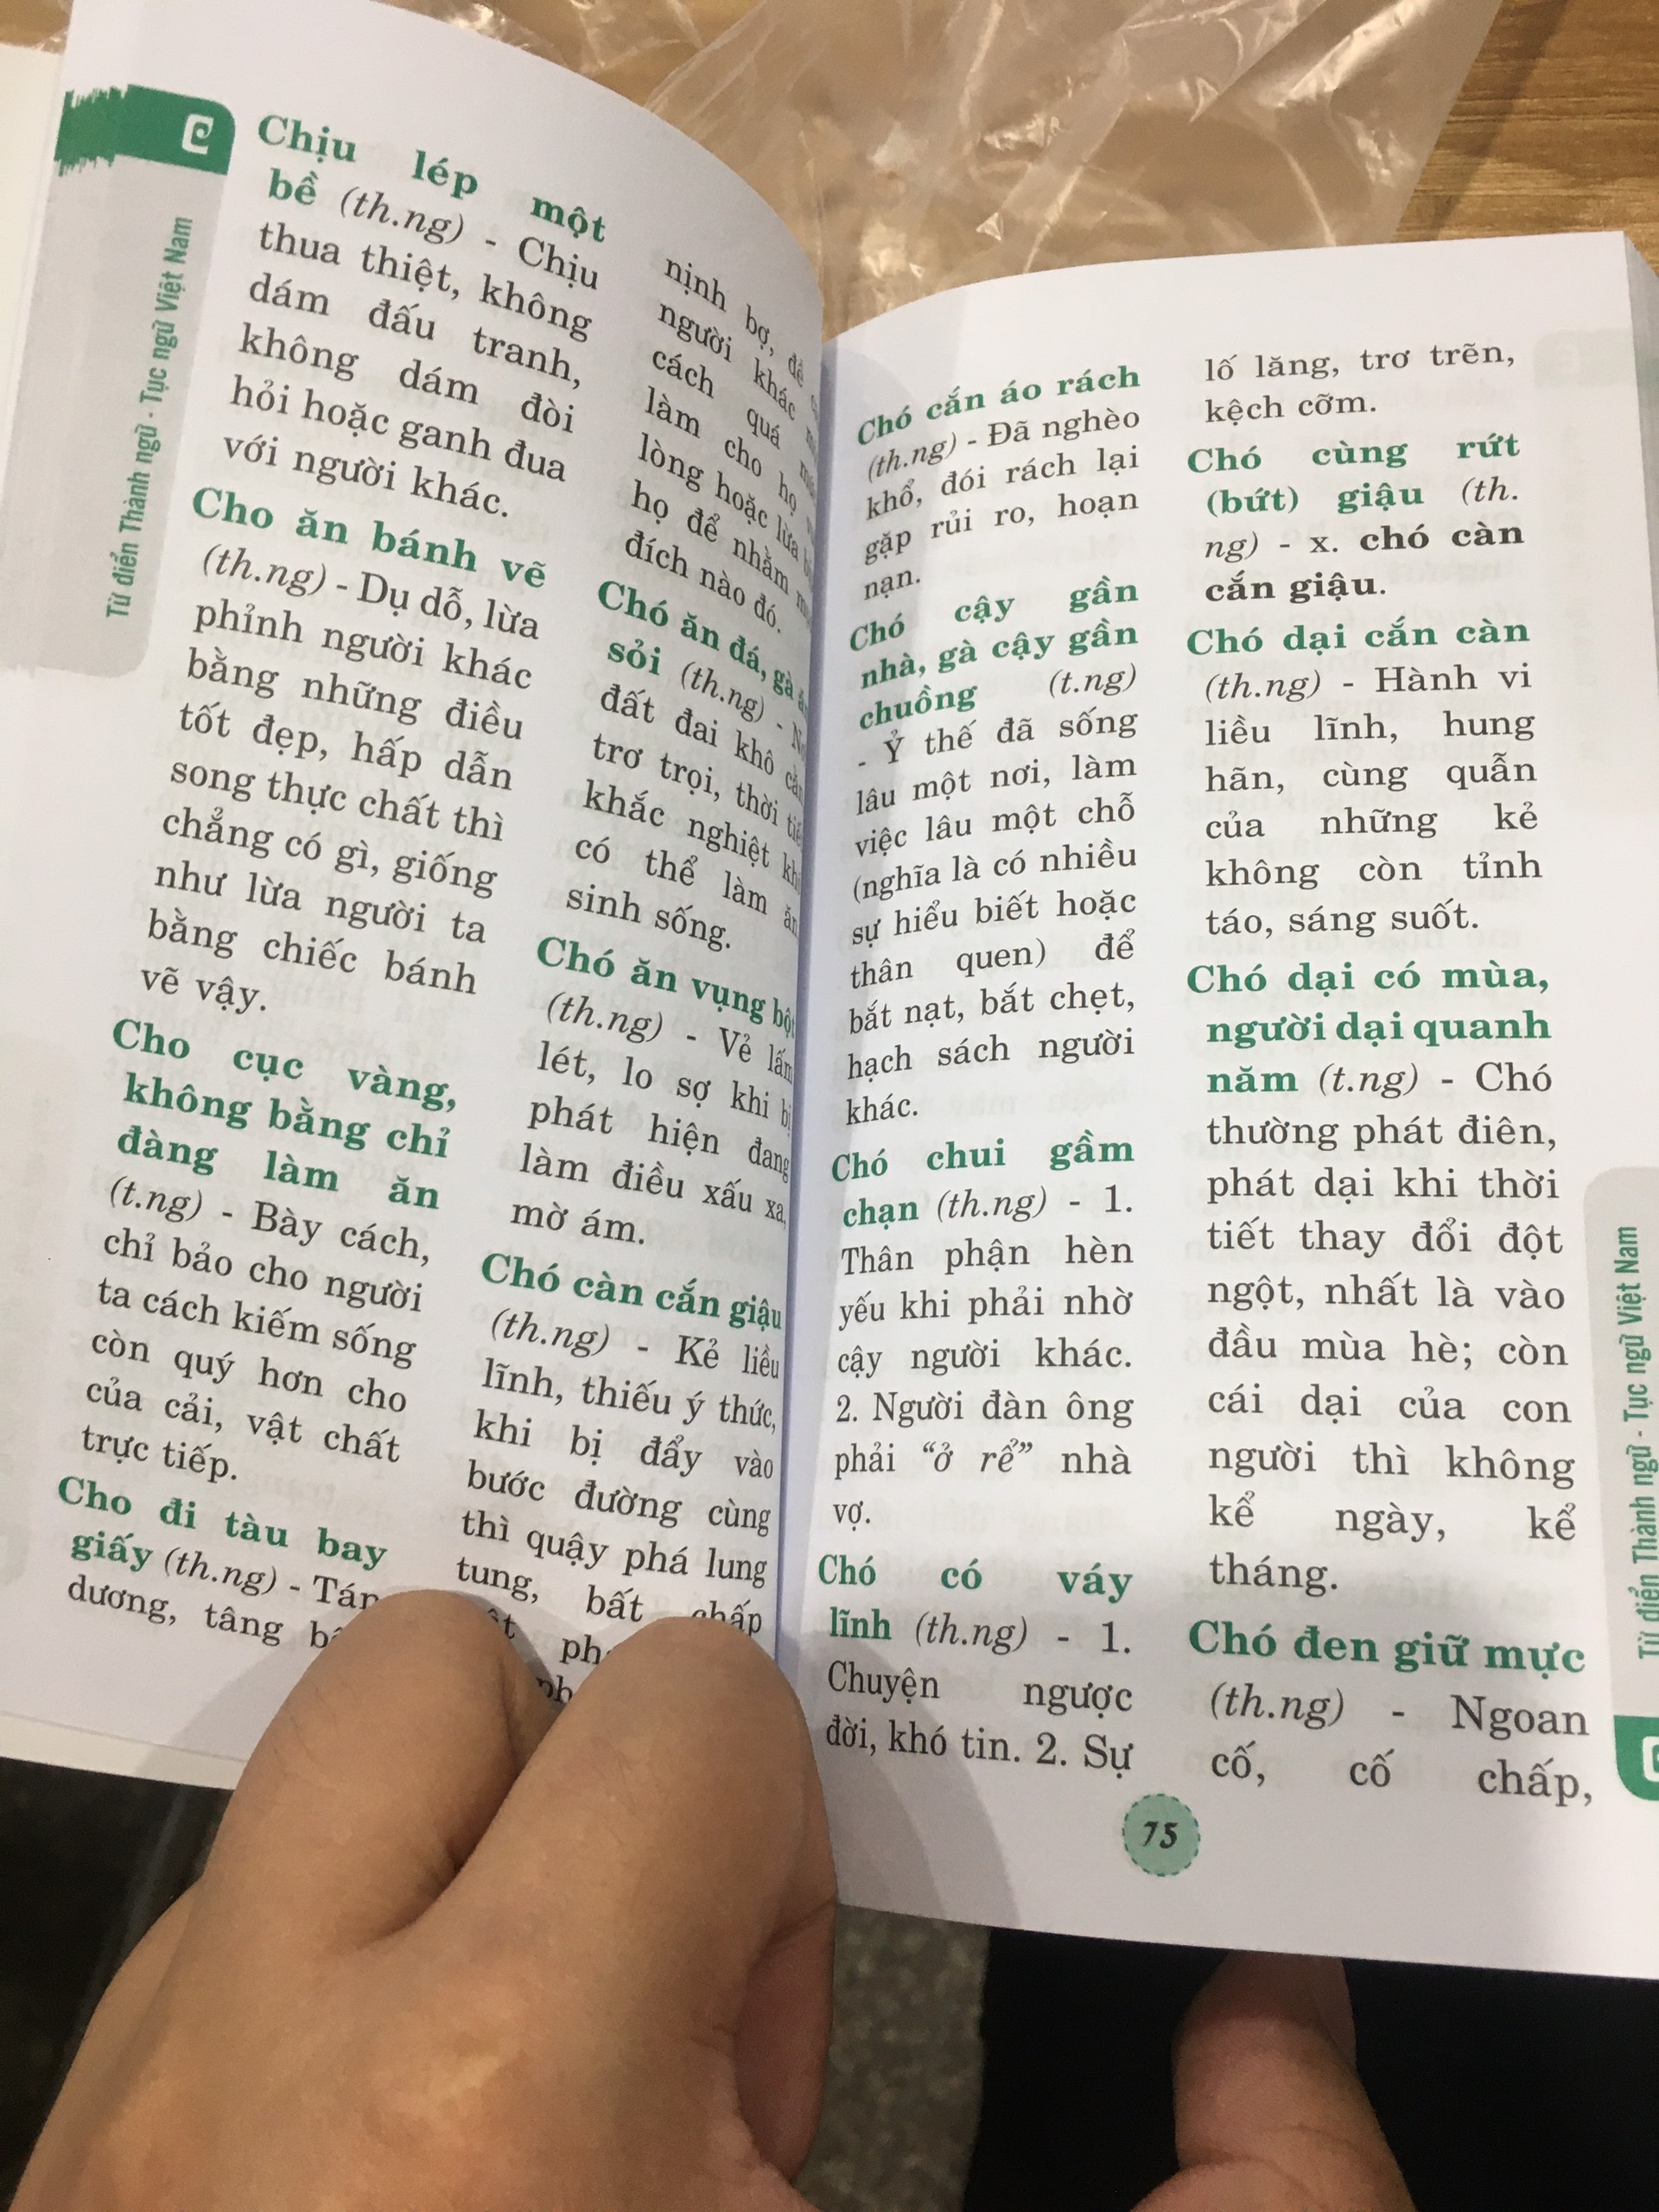 C
Từ điển Thành ngữ - Tục ngữ Việt Nam
Chịu lép một
bề (th.ng) - Chịu
thua thiệt, không
dám đấu tranh,
không dám đòi
hỏi hoặc ganh đua
với người khác.
Cho ăn bánh vẽ
(th.ng) - Dụ dỗ, lừa
phỉnh người khác
bằng những điều
tốt đẹp, hấp dẫn
song thực chất thì
chẳng có gì, giống
như lừa người ta
bằng chiếc bánh
vẽ vậy.
Cho cục vàng,
không bằng chỉ
đàng làm ăn
(t.ng) - Bày cách,
chỉ bảo cho người
ta cách kiếm sống
còn quý hơn cho
của cải, vật chất
trực tiếp.
Cho đi tàu bay
giấy (th.ng) - Tán
dương, tâng
nịnh bợ, đề
người khác
cách quá
làm cho họ
lòng hoặc lừa
họ để nhằm
đích nào đó.
Chó ăn đá, gà
sỏi (th.ng) -
đất đai khô
trơ trọi, thời
khắc nghiệt
có thể làm ăn
sinh sống.
Chó ăn vụng bột
(th.ng) - Vẻ lấm
lét, lo sợ khi bị
phát hiện đang
làm điều xấu xa,
mờ ám.
Chó càn cắn giậu
(th.ng) - Kẻ liều
lĩnh, thiếu ý thức,
khi bị đẩy vào
bước đường cùng
thì quậy phá lung
tung, bất chấp
Chó cắn áo rách
(th.ng) - Đã nghèo
khổ, đói rách lại
gặp rủi ro, hoạn
nạn.
Chó cậy gần
nhà, gà cậy gần
chuồng (t.ng)
- Ỷ thế đã sống
lâu một nơi, làm
việc lâu một chỗ
(nghĩa là có nhiều
sự hiểu biết hoặc
thân quen) để
bắt nạt, bắt chẹt,
hạch sách người
khác.
Chó chui gầm
chạn (th.ng) - 1.
Thân phận hèn
yếu khi phải nhờ
cậy người khác.
2. Người đàn ông
phải “ở rể” nhà
vợ.
Chó có váy
lĩnh (th.ng) - 1.
Chuyện ngược
đời, khó tin. 2. Sự
lố lăng, trơ trẽn,
kệch cỡm.
Chó cùng rứt
(bứt) giậu (th.
ng) - x. chó càn
cắn giậu.
Chó dại cắn càn
(th.ng) - Hành vi
liều lĩnh, hung
hãn, cùng quẫn
của những kẻ
không còn tỉnh
táo, sáng suốt.
Chó dại có mùa,
người dại quanh
năm (t.ng) - Chó
thường phát điên,
phát dại khi thời
tiết thay đổi đột
ngột, nhất là vào
đầu mùa hè; còn
cái dại của con
người thì không
kể ngày, kể
tháng.
Chó đen giữ mực
(th.ng) - Ngoan
cố, cố chấp,
75
Từ điển Thành ngữ - Tục ngữ Việt Nam